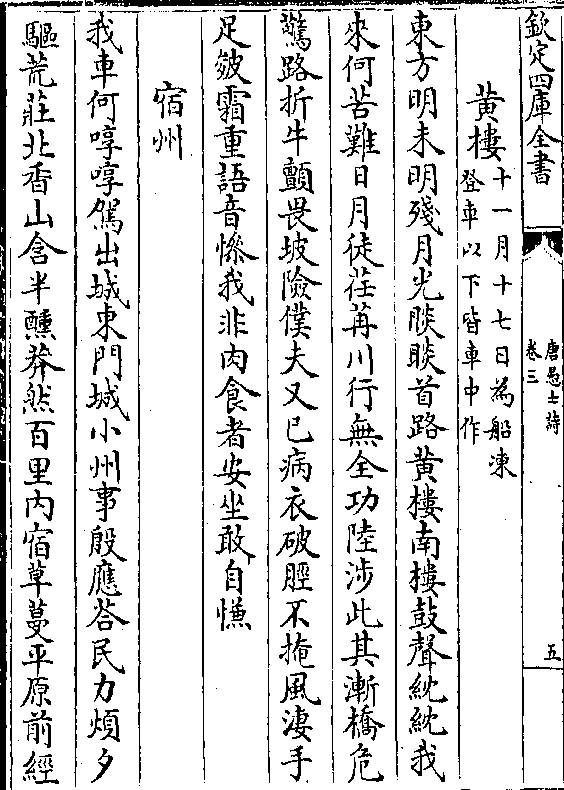 欽定四庫全書
唐愚士詩
卷三
五
黄樓
十一月十七日為船凍
登車以下皆車中作
東方明未明殘月光睒睒首路黄樓南樓鼓聲紞紞我
來何苦難日月徒荏苒川行無全功陸涉此其漸橋危
驚路折牛顫畏坡險僕夫又已病衣破脛不掩風淒手
足皴霜重語音慘我非肉食者安坐敢自慊
宿州
我車何啍啍駕出城東門城小州事殷應答民力煩夕
驅荒莊北香山含半醺莽然百里内宿草蔓平原前經